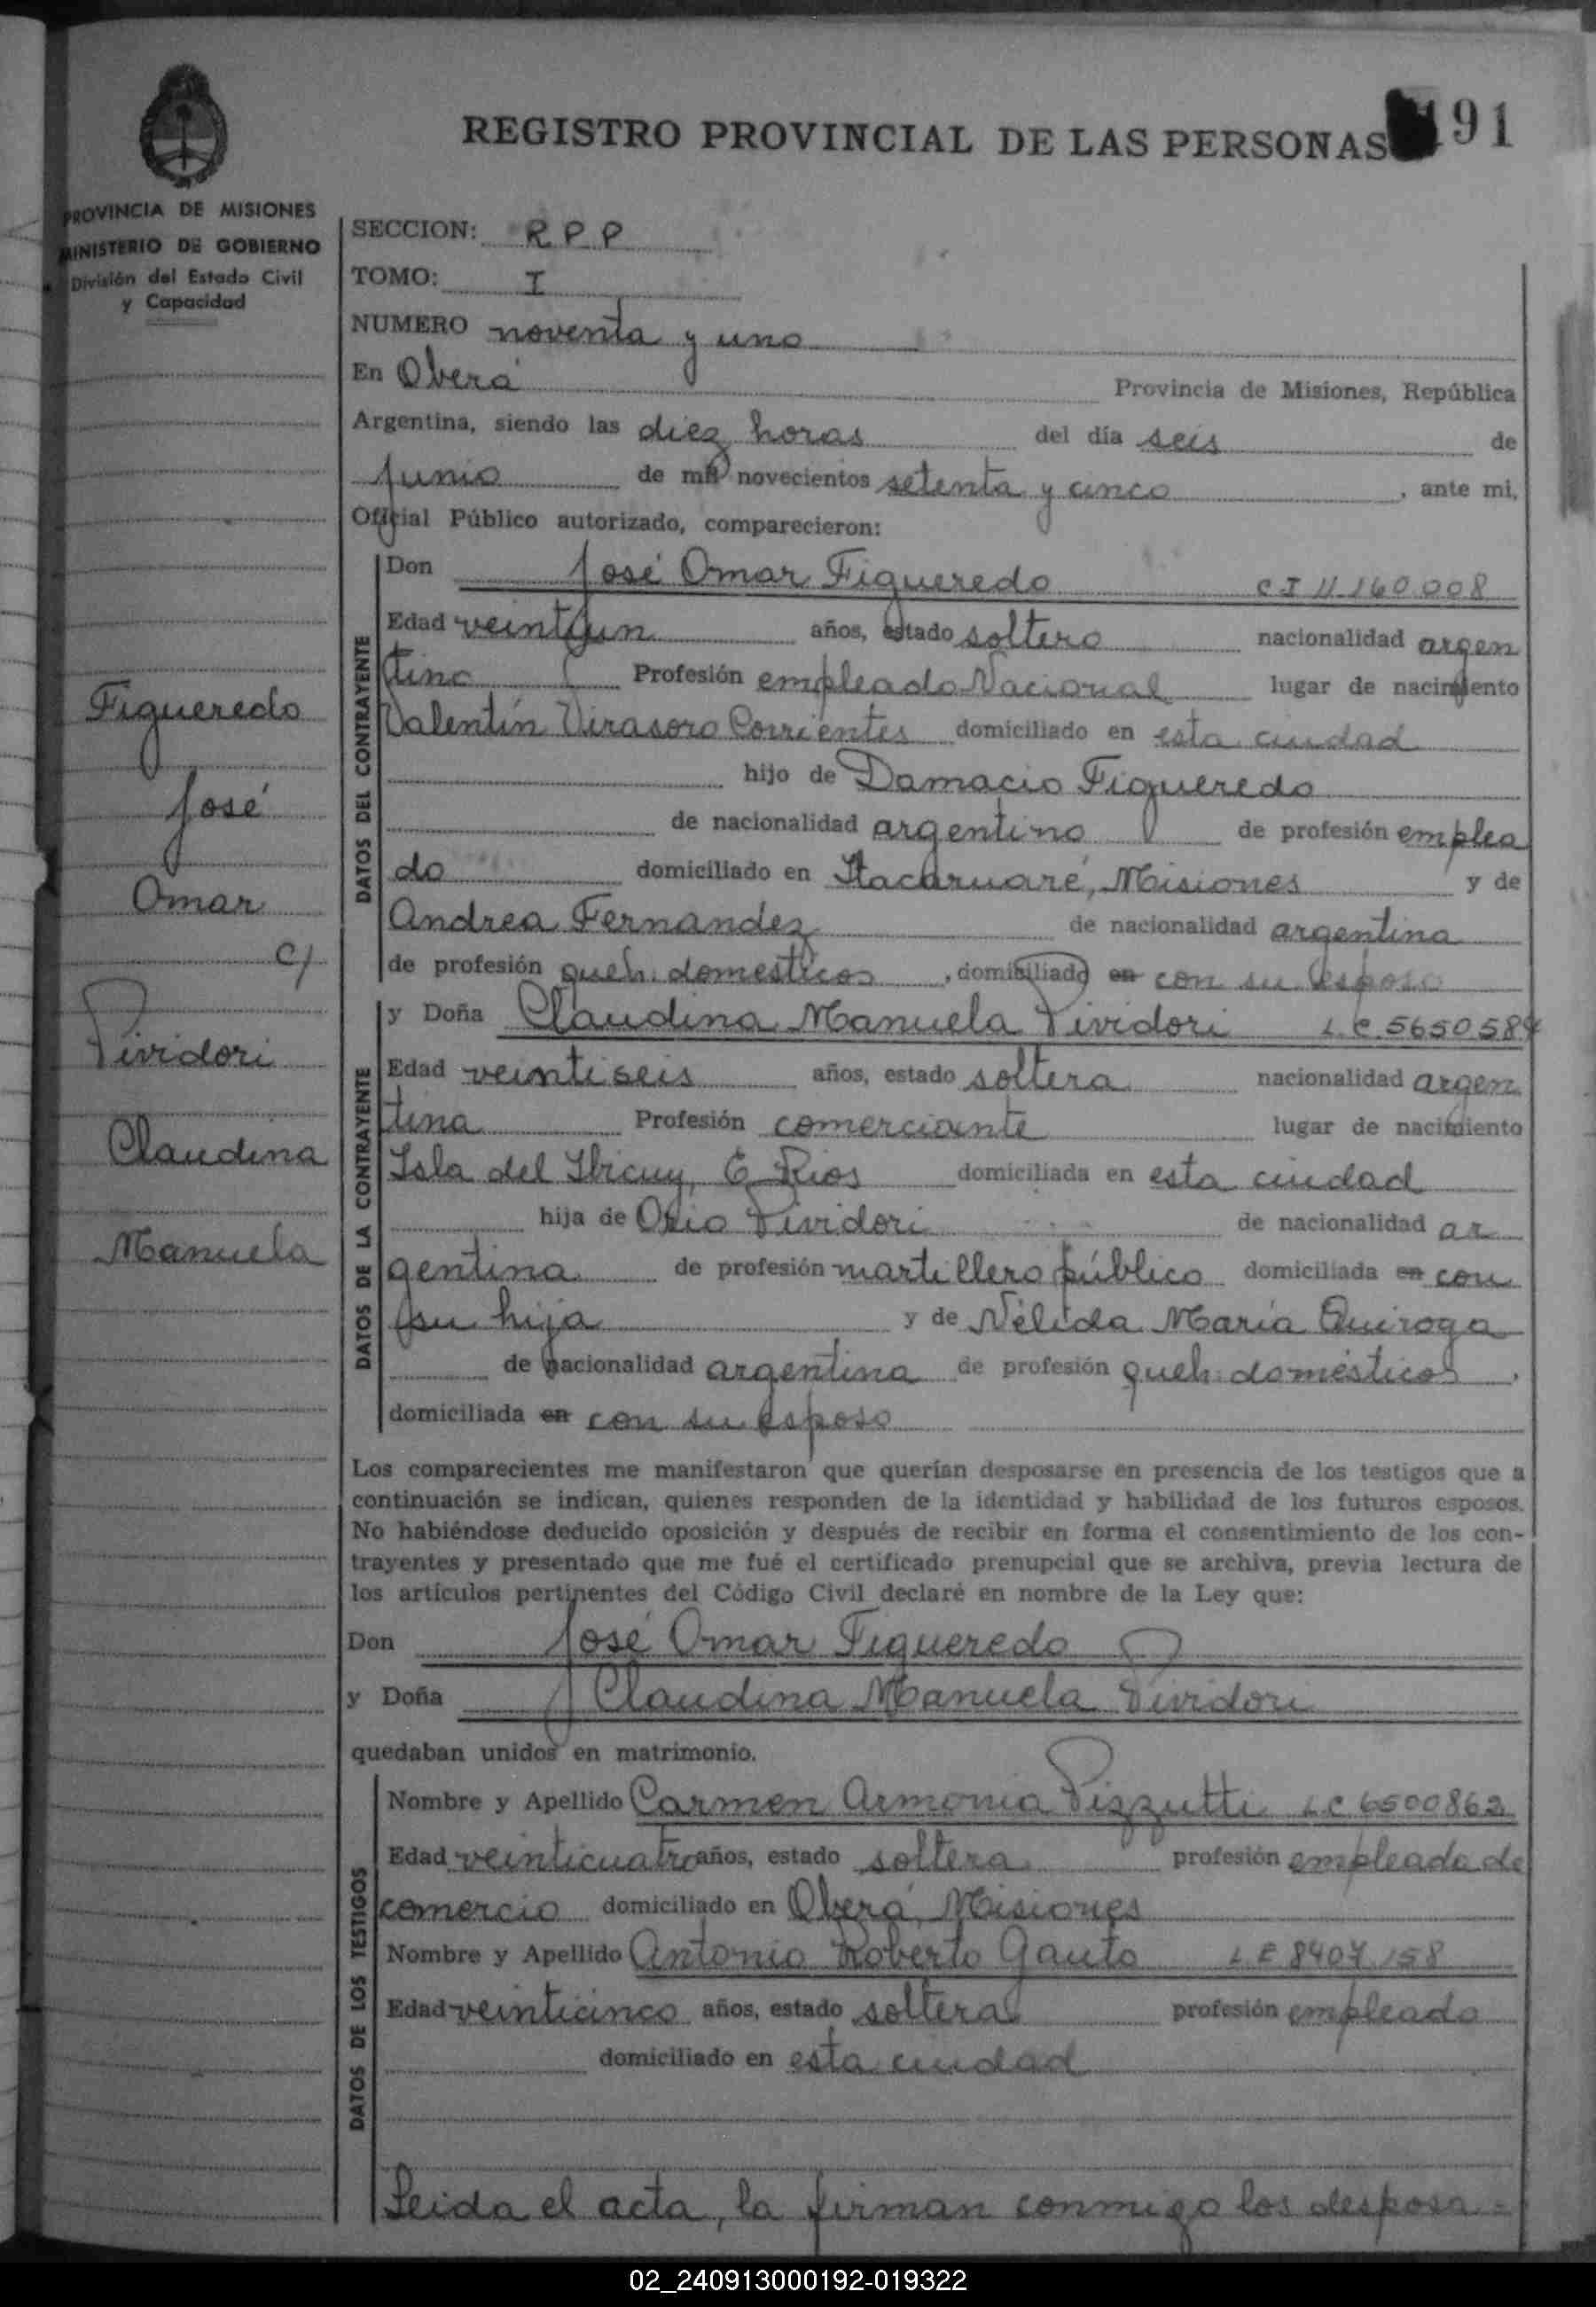 REGISTRO PROVINCIAL DE LAS PERSONAS 191
PROVINCIA DE MISIONES
MINISTERIO DE GOBIERNO
División del Estado Civil
y Capacidad
SECCION: R P P
TOMO: I
NUMERO noventa y uno
En Oberá Provincia de Misiones, República
Argentina, siendo las diez horas del día seis de
Junio de mil novecientos setenta y cinco, ante mi,
Oficial Público autorizado, comparecieron:
DATOS DEL CONTRAYENTE
Don José Omar Figueredo C I 11.160.008
Edad veintiun años, estado soltero nacionalidad argen
tino Profesión empleado Nacional lugar de nacimiento
Valentín Virasoro Corrientes domiciliado en esta ciudad
hijo de Damacio Figueredo
de nacionalidad argentino de profesión emplea
do domiciliado en Itacaruaré, Misiones y de
Andrea Fernandez de nacionalidad argentina
de profesión queh. domesticos, domiciliado en con su esposo
Figueredo
José
Omar
c/
Pividori
Claudina
Manuela
DATOS DE LA CONTRAYENTE
y Doña Claudina Manuela Pividori L.C. 5650.584
Edad veintiseis años, estado soltera nacionalidad argen
tina Profesión comerciante lugar de nacimiento
Isla del Ibicuy, E. Rios domiciliada en esta ciudad
hija de Ovio Pividori de nacionalidad ar
gentina de profesión martillero público domiciliada en con
su hija y de Nélida María Quiroga
de nacionalidad argentina de profesión queh. domésticos,
domiciliada en con su esposo
Los comparecientes me manifestaron que querían desposarse en presencia de los testigos que a
continuación se indican, quienes responden de la identidad y habilidad de los futuros esposos.
No habiéndose deducido oposición y después de recibir en forma el consentimiento de los con-
trayentes y presentado que me fué el certificado prenupcial que se archiva, previa lectura de
los artículos pertinentes del Código Civil declaré en nombre de la Ley que:
Don José Omar Figueredo
y Doña Claudina Manuela Pividori
quedaban unidos en matrimonio.
DATOS DE LOS TESTIGOS
Nombre y Apellido Carmen Armonia Pizzutti L C 6500862
Edad veinticuatro años, estado soltera profesión empleada de
comercio domiciliado en Oberá, Misiones
Nombre y Apellido Antonio Roberto Gauto L E 8407.158
Edad veinticinco años, estado soltera profesión empleado
domiciliado en esta ciudad
Leida el acta, la firman conmigo los desposa=
02_240913000192-019322